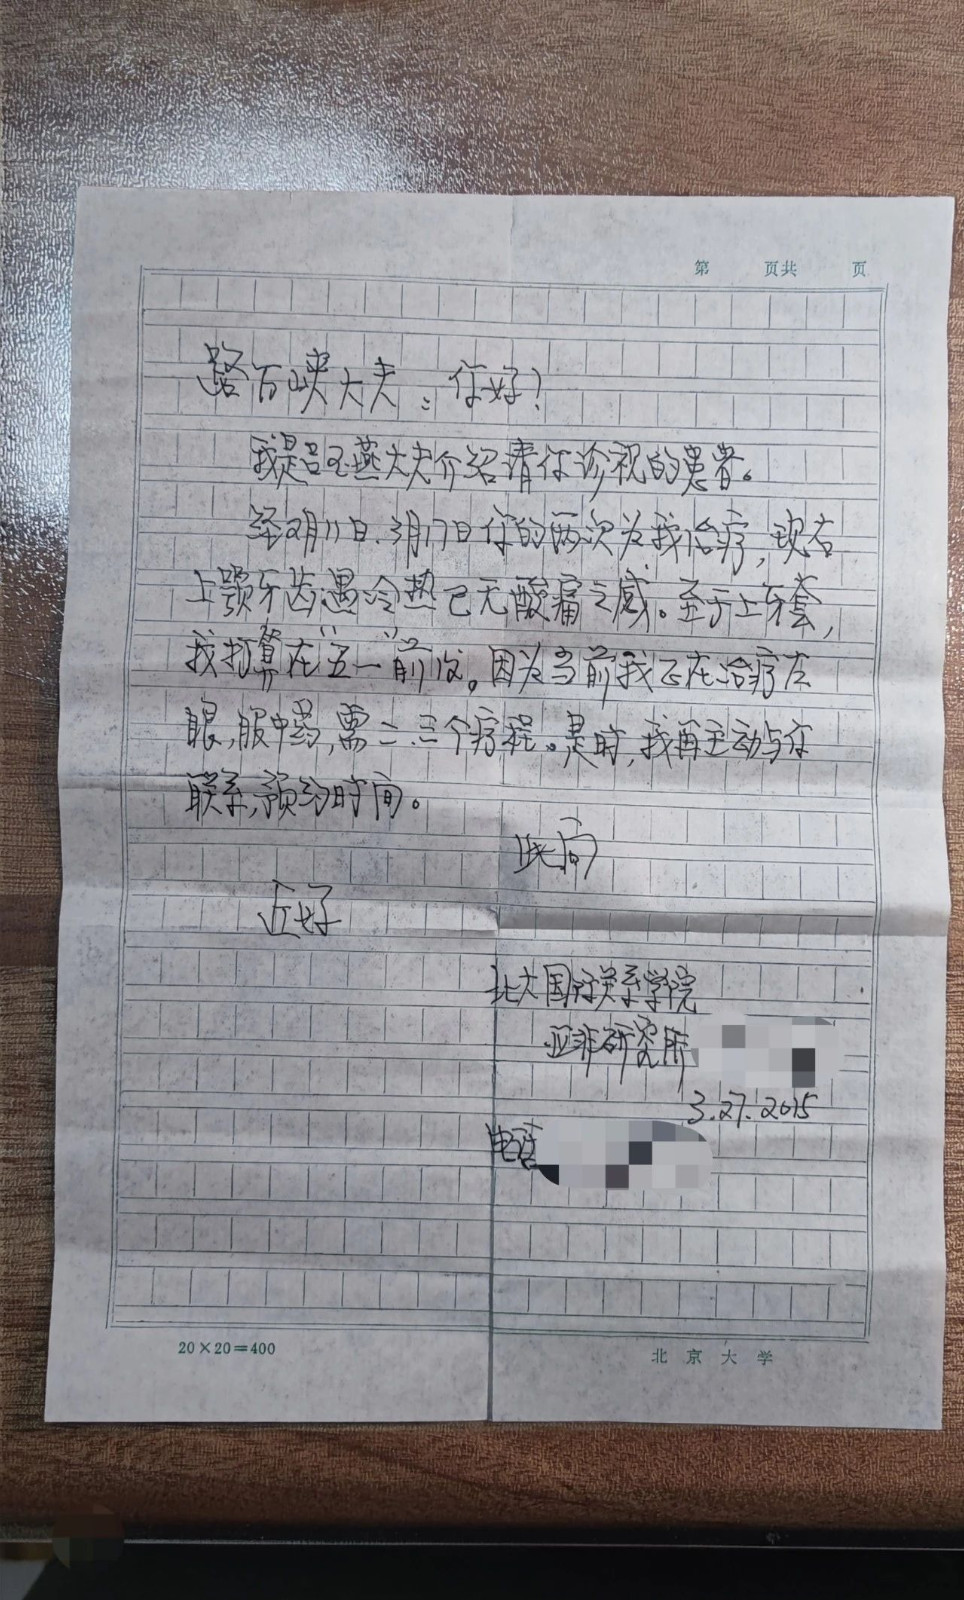 第 页共 页
路百峡大夫：你好！
我是吕玉燕大夫介绍请你诊视的患者。
经2月11日、3月17日你的两次为我治疗，现右
上颚牙齿遇冷热已无酸痛之感。至于上牙套，
我打算在“五一”前后。因为当前我正在治疗左
眼，服中药，需二、三个疗程。是时，我再主动与你
联系，预约时间。
此问
近好
北大国际关系学院
亚非研究所
3.27.2015
电话
20×20=400
北京大学